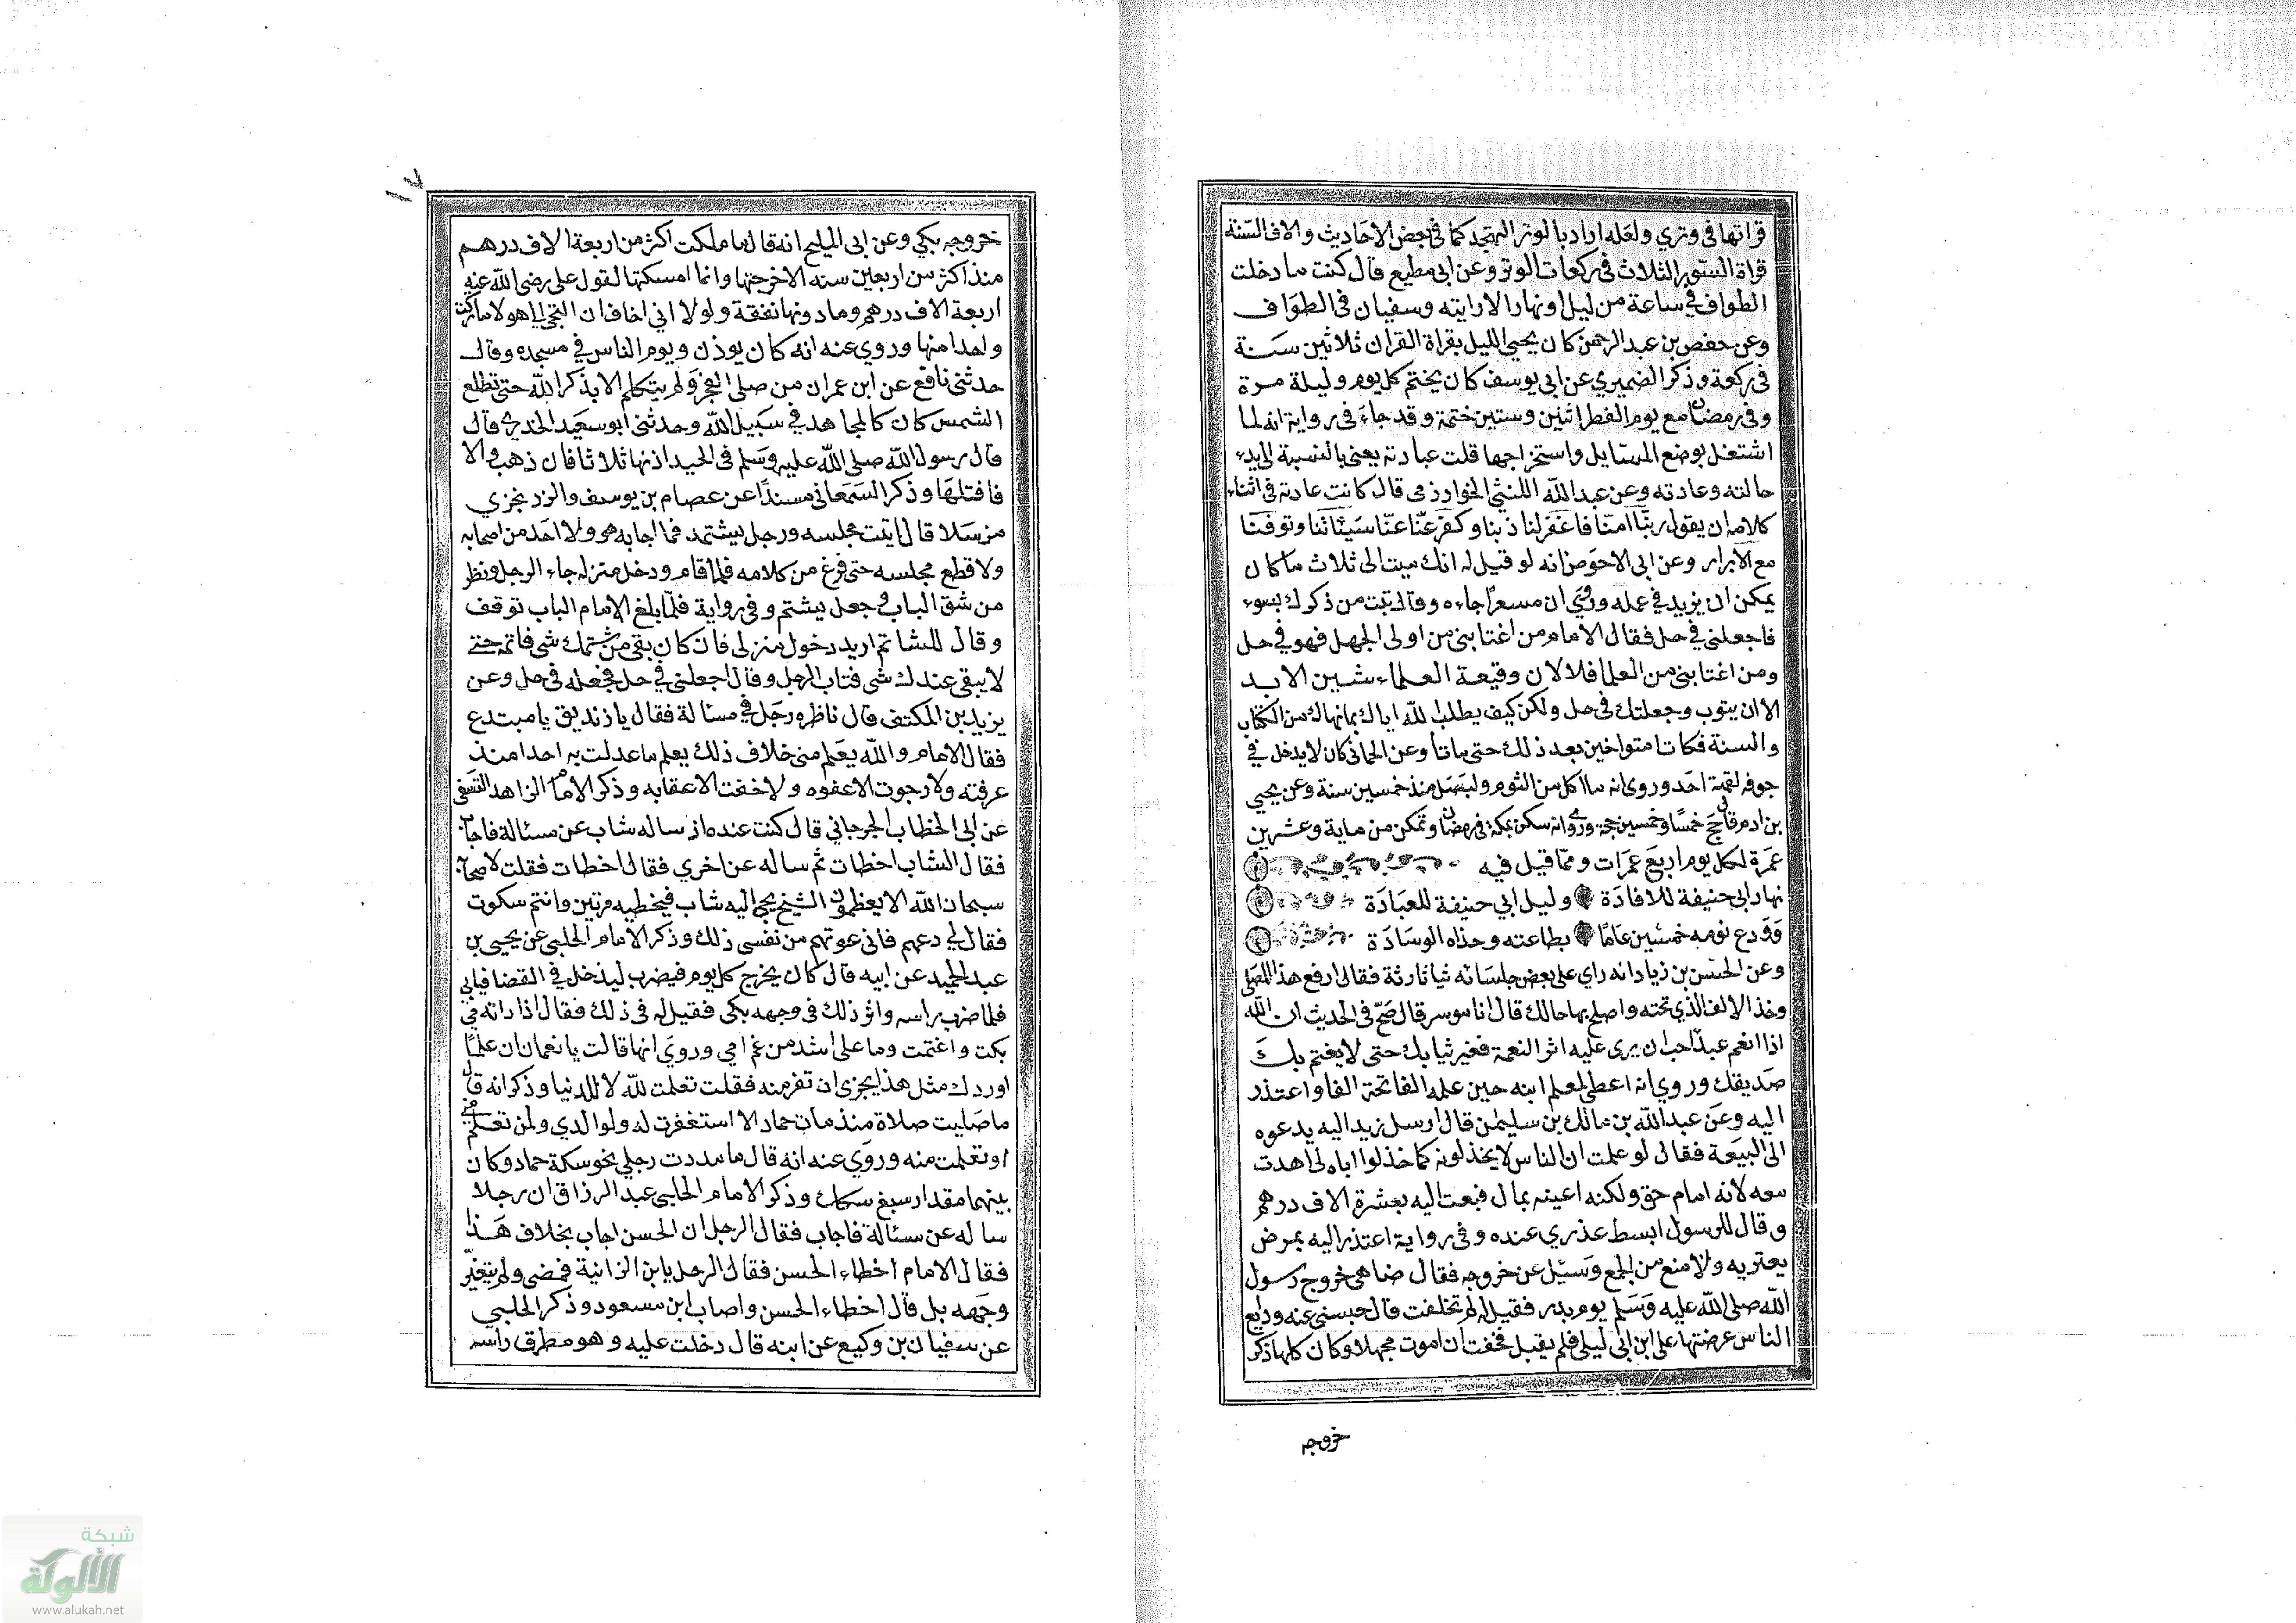 قراتها فى وتري ولعله اراد بالوتر التهجد كما فى بعض الاحاديث والا فالسنة
قراة السور الثلاث فى ركعات الوتر وعن ابى مطيع قال كنت ما دخلت
الطواف في ساعة من ليل او نهار الا رايته وسفيان فى الطواف
وعن حفص بن عبد الرحمن كان يحيى الليل بقراة القران ثلاثين سنة
فى ركعة وذكر الضميري عن ابى يوسف كان يختم كل يوم وليلة مرة
وفى رمضان مع يوم الفطر اثنين وستين ختمة وقد جاء فى رواية انه لما
اشتغل بوضع المسايل واستخراجها قلت عبادته يعنى بالنسبة الى بدء
حالته وعادته وعن عبد الله الخوارزمى قال كانت عادته فى اثناء
كلامه ان يقول ربنا امنا فاغفر لنا ذنبنا وكفر عنا سيئاتنا وتوفنا
مع الابرار وعن ابى الاحوص انه لو قيل له انك ميت الى ثلاث ما كان
يمكن ان يزيد في عمله وروي ان مسعرا جاءه وقال تبت من ذكرك بسوء
فاجعلنى في حل فقال الامام من اغتابنى من اولى الجهل فهو في حل
ومن اغتابنى من العلما فلا لان وقيعة العلماء شين الابد
الا ان يتوب وجعلتك فى حل ولكن كيف يطلب الله اياك بما نهاك من الكتاب
والسنة فكانا متواخين بعد ذلك حتى ماتا وعن الحمانى كان لا يدخل في
جوفه لقمة احد وروى انه ما اكل من الثوم ولبصل منذ خمسين سنة وعن يحيي
بن ادم قال حج خمسا وخمسين حجة وروي انه سكن بمكة فى رمضان وتمكن من ماية وعشرين
عمرة لكل يوم اربع عمرات ومما قيل فيه
نهار ابى حنيفة للافادة وليل ابي حنيفة للعبادة
وودع نومه خمسين عاما بطاعته وحذاه الوسادة
وعن الحسن بن زياد انه راي على بعض جلسائه ثيابا رثة فقال ارفع هذا المصلى
وخذ الالف الذي تحته واصلح بها حالك قال انا موسر قال صح فى الحديث ان الله
اذا انعم عبدا احب ان يرى عليه اثر النعمة فغير ثيابك حتى لا يغتم بك
صديقك وروي انه اعطى لمعلم ابنه حين علمه الفاتحة الفا واعتذر
اليه وعن عبد الله بن مالك بن سليمن قال ارسل زيد اليه يدعوه
الى البيعة فقال لو علمت ان الناس لا يخذلونه كما خذلوا اباه لجاهدت
معه لانه امام حق ولكنه اعينه بمال فبعث اليه بعشرة الاف درهم
وقال للرسول ابسط عذري عنده وفى رواية اعتذر اليه بمرض
يعتريه ولا منع من الجمع وسئل عن خروجه فقال ضاهى خروج رسول
الله صلى الله عليه وسلم يوم بدر فقيل له لم تخلفت قال حبسنى عنه ودايع
الناس عرضتها على ابن ابى ليلى فلم يقبل فخفت ان اموت مجهلا وكان كلما ذكر
خروجه
١٧
خروجه بكي وعن ابى المليح انه قال ما ملكت اكثر من اربعة الاف درهم
منذ اكثر من اربعين سنه الا خرجتها وانما امسكتها لقول على رضى الله عنه
اربعة الاف درهم وما دونها نفقة ولولا اني اخاف ان التجى الى هولا ما تركت
واحدا منها وروي عنه انه كان يوذن ويوم الناس في مسجده وقال
حدثنى نافع عن ابن عمر ان من صلى الفجر ولم يتكلم الا بذكر الله حتى تطلع
الشمس كان كالمجاهد في سبيل الله وحدثنى ابو سعيد الخدري قال
قال رسول الله صلى الله عليه وسلم فى الحيد اذنها ثلاثا فان ذهب والا
فاقتلها وذكر السمعانى مسندا عن عصام بن يوسف والزرنجري
مرسلا قال اتيت مجلسه ورجل يشتمه فما اجابه هو ولا احد من اصحابه
ولا قطع مجلسه حتى فرغ من كلامه فلما قام ودخل منزله جاء الرجل ونظر
من شق الباب وجعل يشتم وفى رواية فلما بلغ الامام الباب توقف
وقال للشاتم اريد دخول منزلى فان كان بقى من شتمك شى فاتمه حتى
لا يبقى عندك شى فتاب الرجل وقال اجعلنى في حل فجعله فى حل وعن
يزيد بن المكتف قال ناظره رجل في مسالة فقال يا زنديق يا مبتدع
فقال الامام والله يعلم منى خلاف ذلك يعلم ما عدلت به احدا منذ
عرفته ولا رجوت الا عفوه ولا خفت الا عقابه وذكر الامام الزاهد النسفى
عن ابى الخطاب الجرجاني قال كنت عنده اذ ساله شاب عن مسئالة فاجابه
فقال الشاب اخطات ثم ساله عن اخري فقال اخطات فقلت لاصحابه
سبحان الله الا يعظموا الشيخ يجى اليه شاب فيخطيه مرتين وانتم سكوت
فقال لي دعهم فانى عوتهم من نفسى ذلك وذكر الامام الحلبى عن يحيى بن
عبد الحميد عن ابيه قال كان يخرج كل يوم فيضرب ليدخل في القضا فيابى
فلما ضرب راسه واثر ذلك فى وجهه بكى فقيل له فى ذلك فقال اذا راته امي
بكت واغتمت وما على اشد من غم امي وروي انها قالت يا نعمان ان علما
اوردك مثل هذا يجزى ان تفر منه فقلت تعلمت لله لا للدنيا وذكر انه قال
ما صليت صلاة منذ مات حماد الا استغفرت له ولوالدي ولمن تعلم مني
او تعلمت منه وروي عنه انه قال ما مددت رجلي نحو سكة حماد وكان
بينهما مقدار سبع سكك وذكر الامام الحلبى عبد الرزاق ان رجلا
ساله عن مسئالة فاجاب فقال الرجل ان الحسن اجاب بخلاف هذا
فقال الامام اخطاء الحسن فقال الرجل يا بن الزانية فمضى ولم يتغير
وجهه بل قال اخطاء الحسن واصاب ابن مسعود وذكر الحلبي
عن سفيان بن وكيع عن ابنه قال دخلت عليه وهو مطرق راسه
شبكة
الألوكة
www.alukah.net